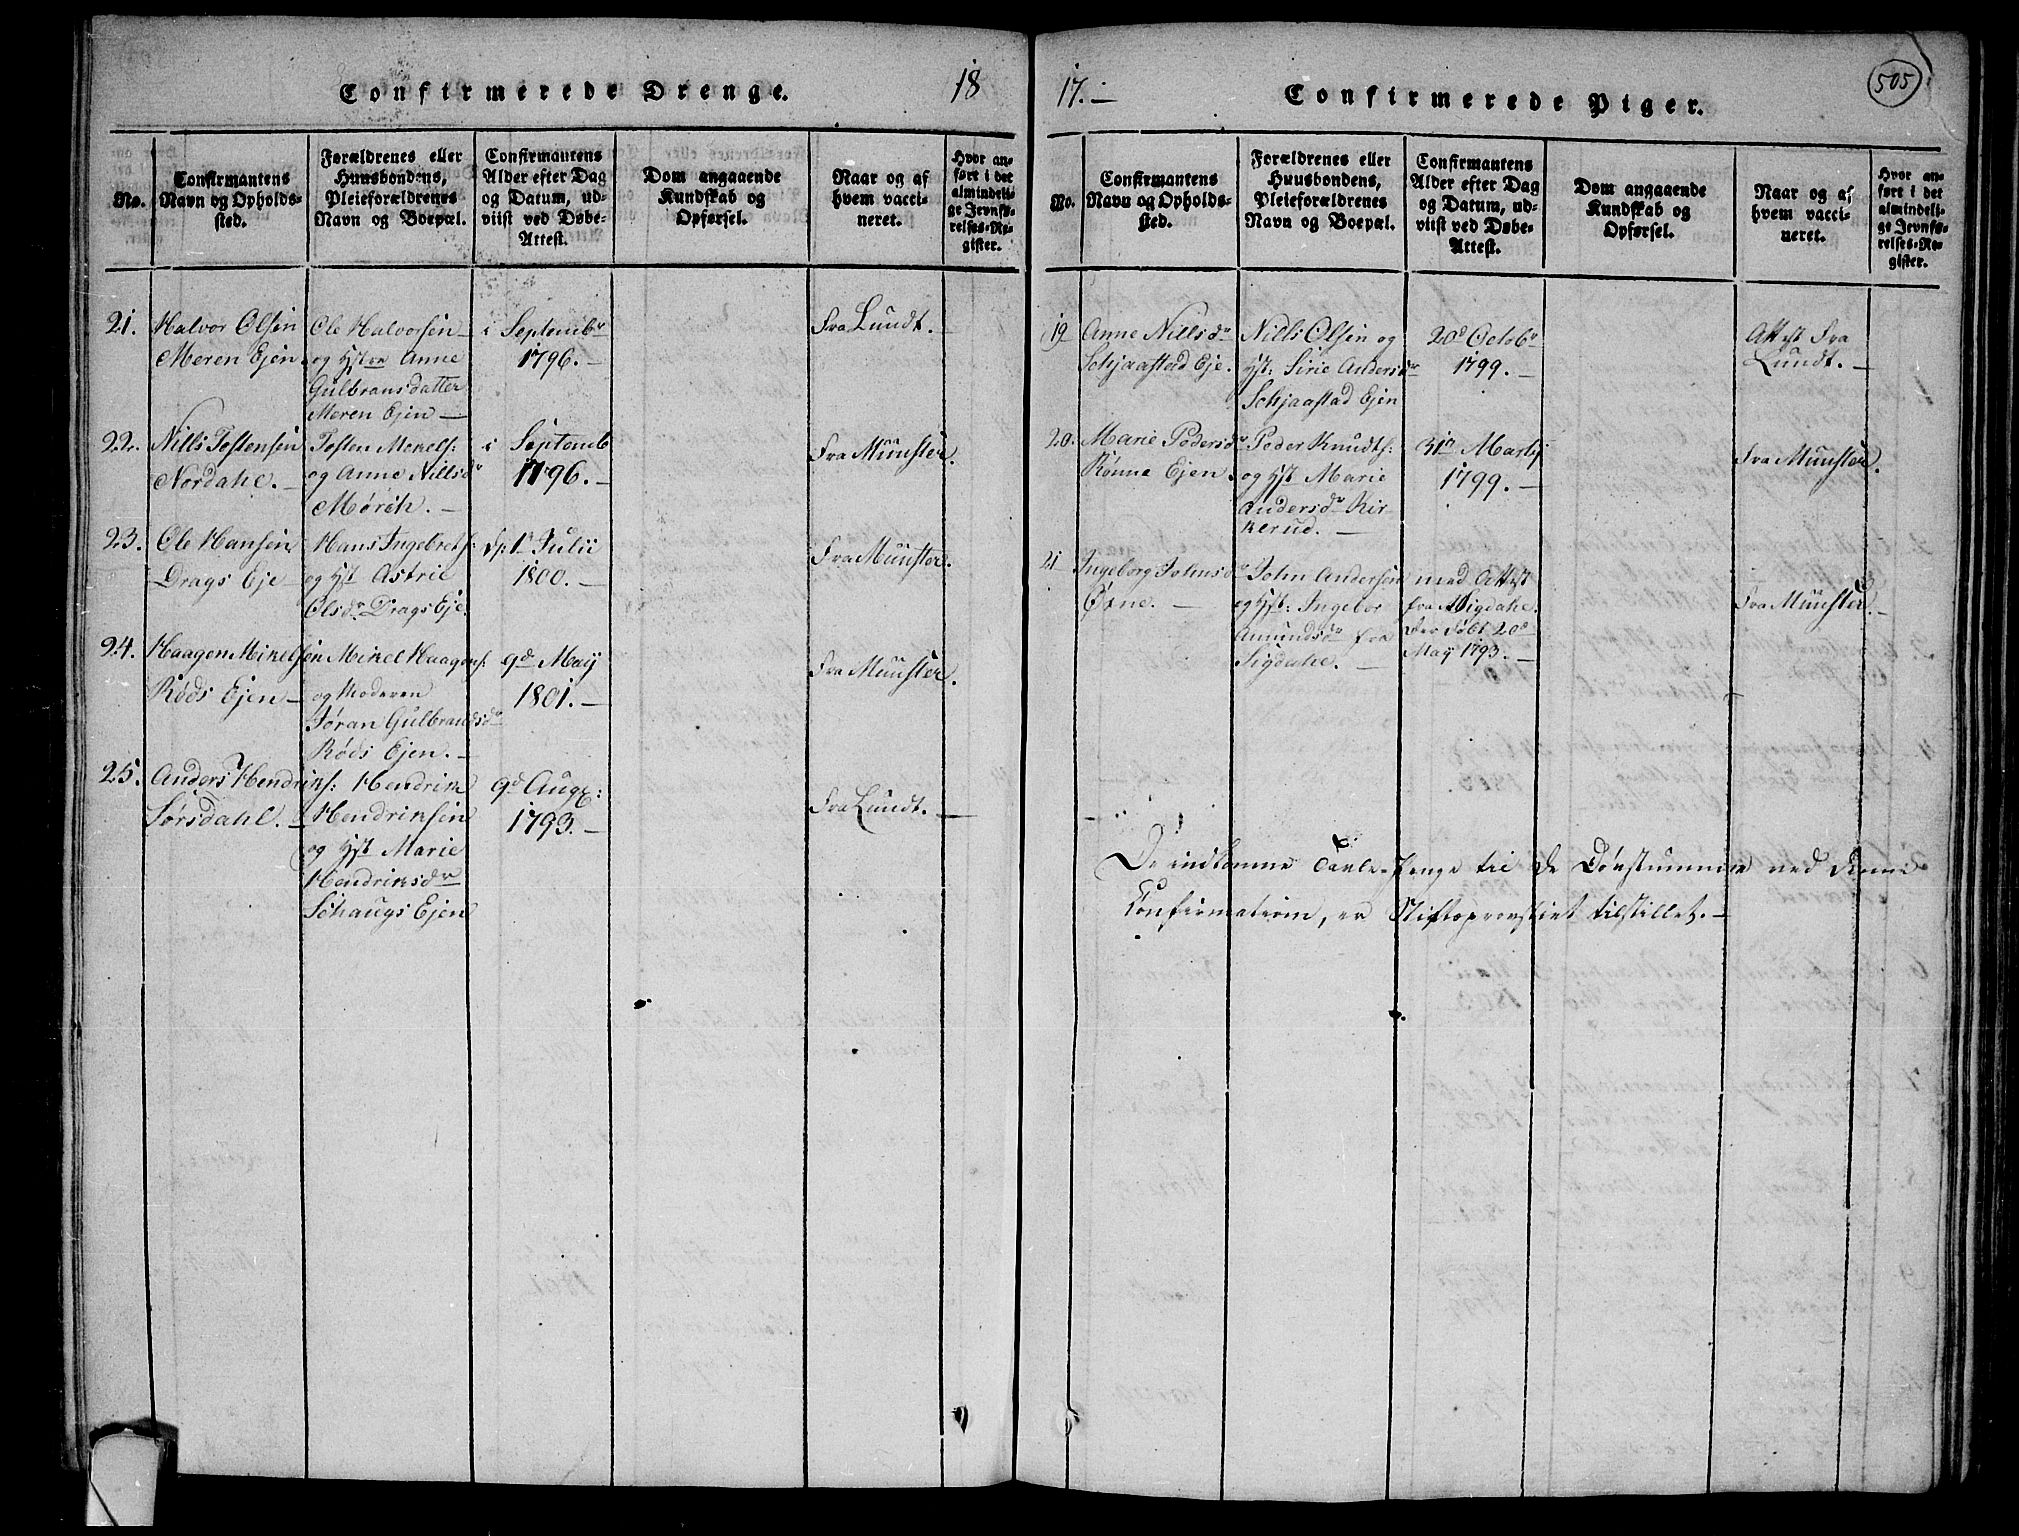 Confirmerede Drenge.
18
No.
Confirmantens
Navn og Opholds-
sted.
Forældrenes eller
Huusbondens,
Pleieforældrenes
Navn og Boepæl.
Confirmantens
Alder efter Dag
og Datum, ud-
viist ved Døbe-
Attest.
Dom angaaende
Kundskab og
Opførsel.
Naar og af
hvem vacci-
neret.
Hvor an-
ført i det
almindeli-
ge Jevnfø-
relses-Re-
gister.
21.
Halvor Olsen
Meren Ejen
Ole Halvorsen
og Hst Anne
Gulbransdatter
Meren Ejen
i Septembr
1796.
Fra Lundt.
22.
Nills Tostensen
Nordahl.
Tosten Mekels:
og Anne Nillsdr
Mørch.
i Septemb
1796.
Fra Munster.
23.
Ole Hansen
Drags Eje
Hans Ingebrets:
og Hst Astrie
Olsdr Drags Eje.
1t Julii
1800.
Fra Munster
24.
Haagen Mikelsen
Røds Ejen
Mikel Haagens:
og Moderen
Jøran Gulbrandsdr
Røds Ejen.
9d May
1801.
Fra Munster.
25.
Anders Hendriks:
Sørsdahl.
Hendrik
Hendriksen
og Hst Marie
Hendriksdr
Schaugs Ejen
9d Aug:
1793.
Fra Lundt.
17.
Confirmerede Piger.
505
No.
Confirmantens
Navn og Opholds-
sted.
Forældrenes eller
Huusbondens,
Pleieforældrenes
Navn og Boepæl.
Confirmantens
Alder efter Dag
og Datum, ud-
viist ved Døbe-
Attest.
Dom angaaende
Kundskab og
Opførsel.
Naar og af
hvem vacci-
neret.
Hvor an-
ført i det
almindeli-
ge Jevnfø-
relses-Re-
gister.
19
Anne Nillsdr
Schjaastad Eje.
Nills Olsen og
Hst: Sirie Andersdr
Schjaastad Ejen
20d Octobr
1799.
Attest Fra
Lundt.
20.
Marie Pedersdr
Rønne Ejen
Peder Knudts:
og Hst Marie
Andersdr Kir-
kerud.
31te Martij
1799.
Fra Munster.
21
Ingeborg Johnsdr
Øxne.
John Andersen
og Hst: Ingebor
Amundsdr fra
Sigdahl.
med Attest
fra Sigdahl.
Der født 20d
May 1793.
Fra Munster.
De indkomne Tavle-Penge til de Døvstumme ved denne
Confirmation, er Stiftsprovstiet tilstillet.